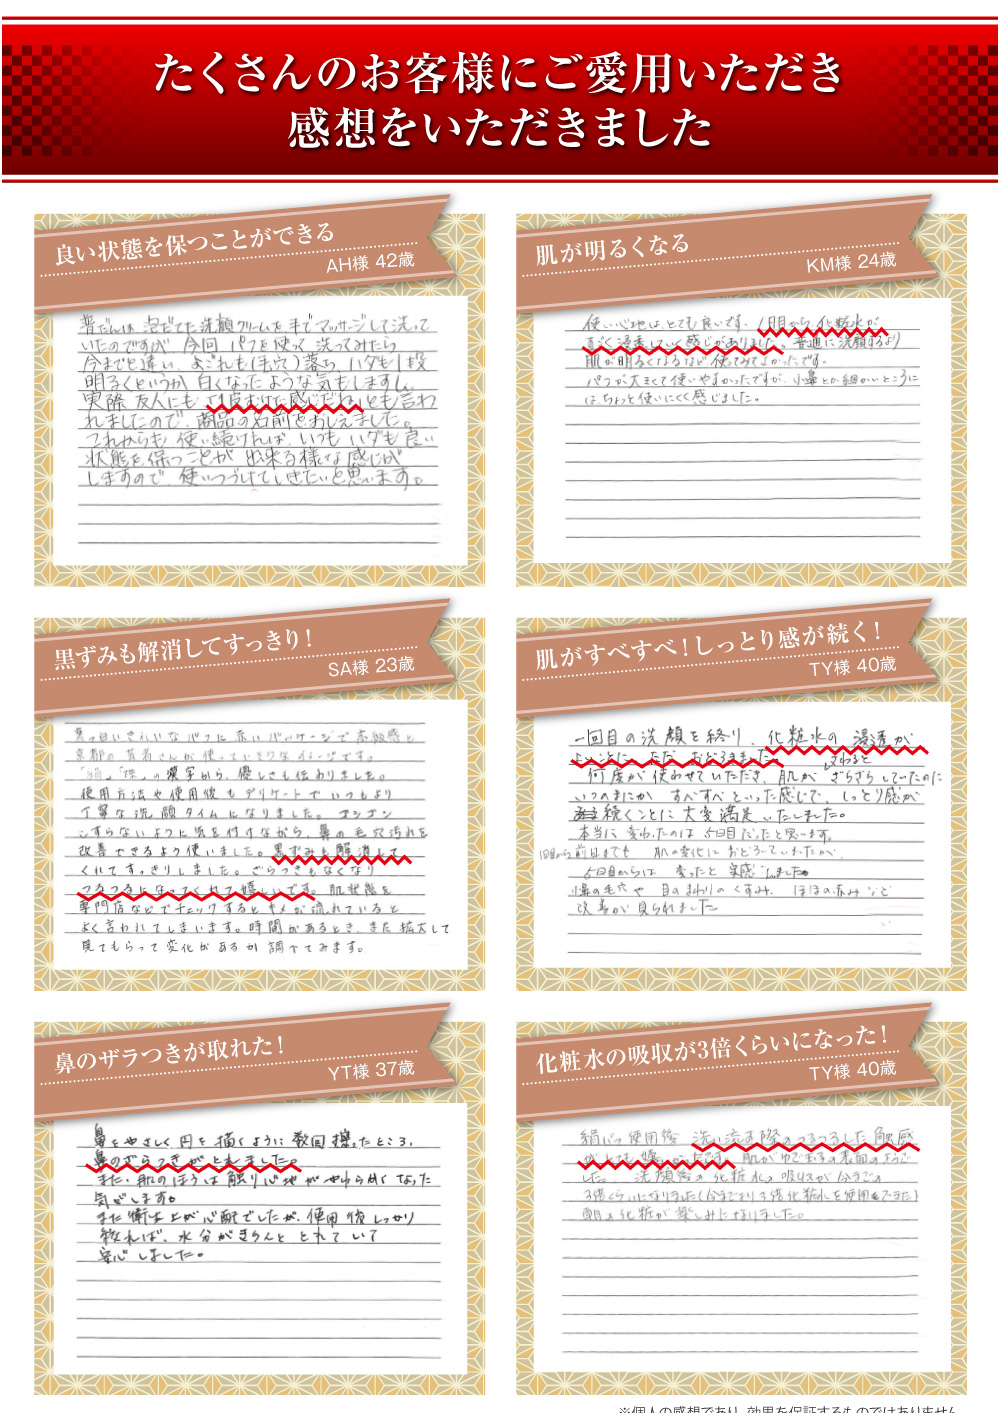 たくさんのお客様にご愛用いただき
感想をいただきました
良い状態を保つことができる
AH様 42歳
普だんは、泡だてた洗顔クリームを手でマッサージして洗って
いたのですが、今回 パフを使って洗ってみたら
今までと違い、よごれも(毛穴)落ち、ハダも1段
明るくというか 白くなったような気もしますし、
実際 友人にも "1皮むけた感じだね"とも言わ
れましたので、商品の名前をおしえました。
これからも 使い続ければ、いつも ハダも良い
状態を保つことが 出来る様な感じが
しますので、使いつづけていきたいと思います。
肌が明るくなる
KM様 24歳
使い心地は、とても良いです。1日目から、化粧水が
すごく浸透していく感じがありました。普通に洗顔するより
肌が明るくなるなど 使ってみてよかったです。
パフが大きくて使いやすかったですが、小鼻とか細かいところに
は、ちょっと使いにくく感じました。
黒ずみも解消してすっきり！
SA様 23歳
真っ白いきれいなパフに赤いパッケージで高級感と
京都の芸者さんが使っていそうなイメージです。
「絹」「珠」の漢字から、優しさも伝わりました。
使用方法や使用後もデリケートでいつもより
丁寧な洗顔タイムになりました。ゴシゴシ
こすらないように気を付けながら、鼻の毛穴汚れを
改善できるよう使いました。黒ずみも解消して
くれてすっきりしました。ざらつきもなくなり
つるつるになってくれて嬉しいです。肌状態を
専門店などでチェックするとキメが流れていると
よく言われてしまいます。時間があるとき、また拡大して
見てもらって変化があるか調べてみます。
肌がすべすべ！しっとり感が続く！
TY様 40歳
一回目の洗顔を終り、化粧水の浸透が
よいことに、ただ、おどろきました。
さわると
何度か使わせていただき、肌がざらざらしていたのに
いつのまにか すべすべといった感じで、しっとり感が
続くことに大変満足いたしました。
本当に変わったのは5回目だったと思います。
1回目から前日までも 肌の変化におどろいていましたが、
5回目からは 変ったと実感しました。
小鼻の毛穴や 目のまわりのくすみ、ほほの赤みなど
改善が見られました
鼻のザラつきが取れた！
YT様 37歳
鼻をやさしく円を描くように数回擦ったところ、
鼻のざらつきがとれました。
また、肌のほうは触り心地がやわらかくなった
気がします。
また衛生上が心配でしたが、使用後しっかり
絞れば、水分がきちんととれていて
安心しました。
化粧水の吸収が3倍くらいになった！
TY様 40歳
絹パフ使用後 洗い流す際のつるつるした触感
がとても嬉しかったです。肌がゆで玉子の表面のようで
した。洗顔後の化粧水の吸収が今までの
3倍くらいになりました(今までより3倍化粧水を使用できた)
朝の化粧が楽しみになりました。
※個人の感想であり、効果を保証するものではありません。